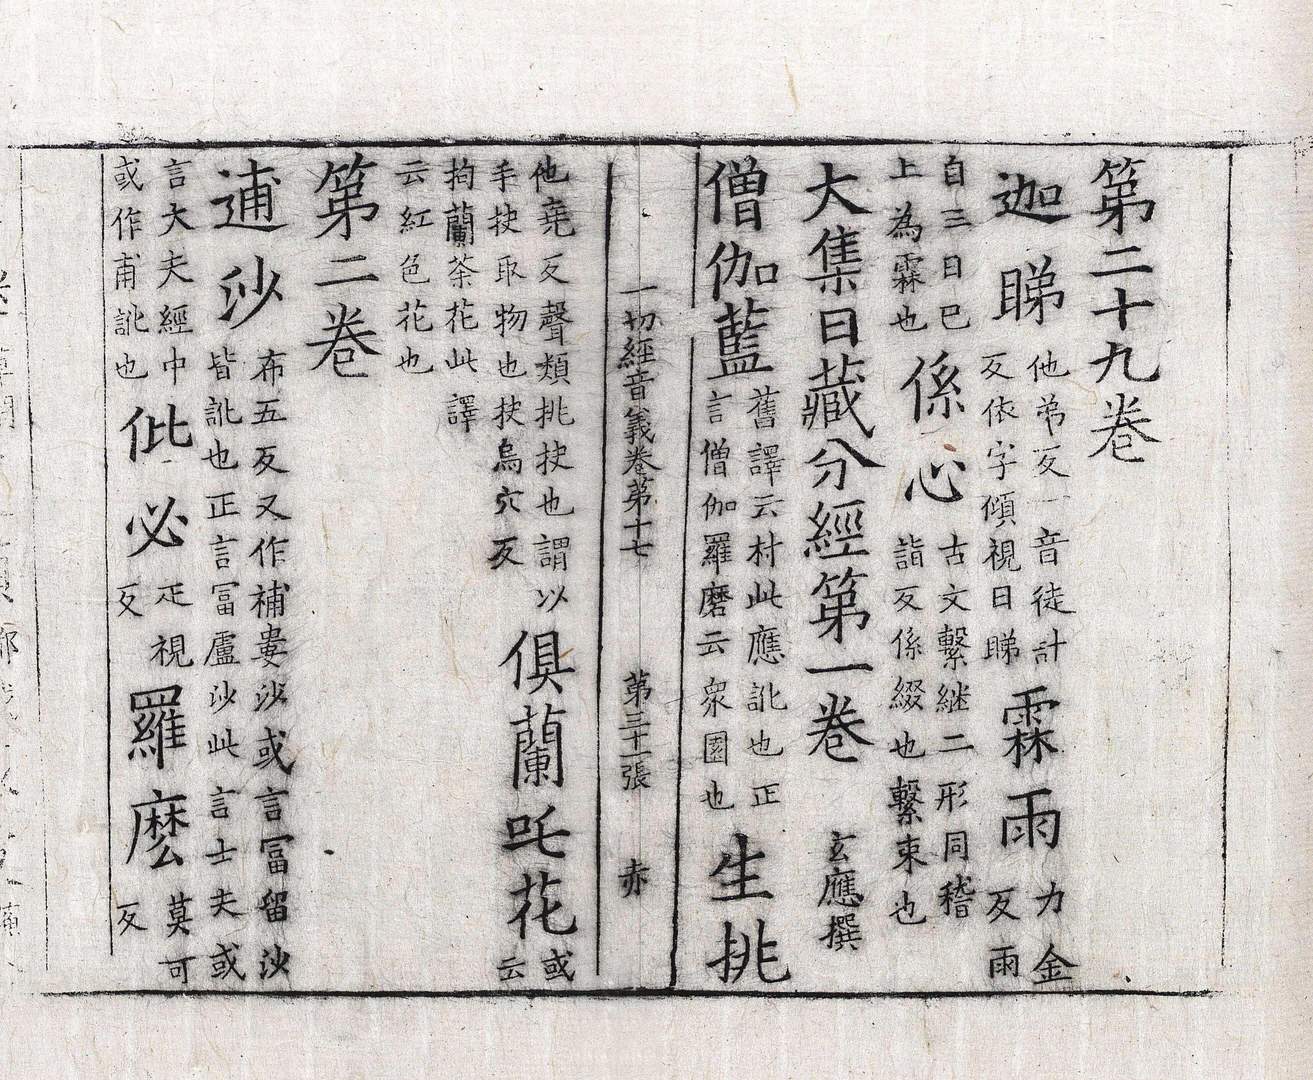 第二十九卷
迦睇
他弟反一音徒計
反依字傾視曰睇
霖雨
力金
反雨
自三日已
上為霖也
係心
古文繫継二形同稽
詣反係綴也繫束也
大集日藏分經第一卷
玄應撰
僧伽藍
舊譯云村此應訛也正
言僧伽羅磨云衆園也
生挑
一切經音義卷第十七
第三十一張
赤
他堯反聲類挑抉也謂以
手抉取物也抉烏穴反
俱蘭吒花
或云
拘蘭茶花此譯
云紅色花也
第二卷
逋沙
布五反又作補婁沙或言冨留沙
皆訛也正言冨盧沙此言士夫或
言大夫經中
或作甫訛也
仳必
疋視
反
羅麽
莫可
反